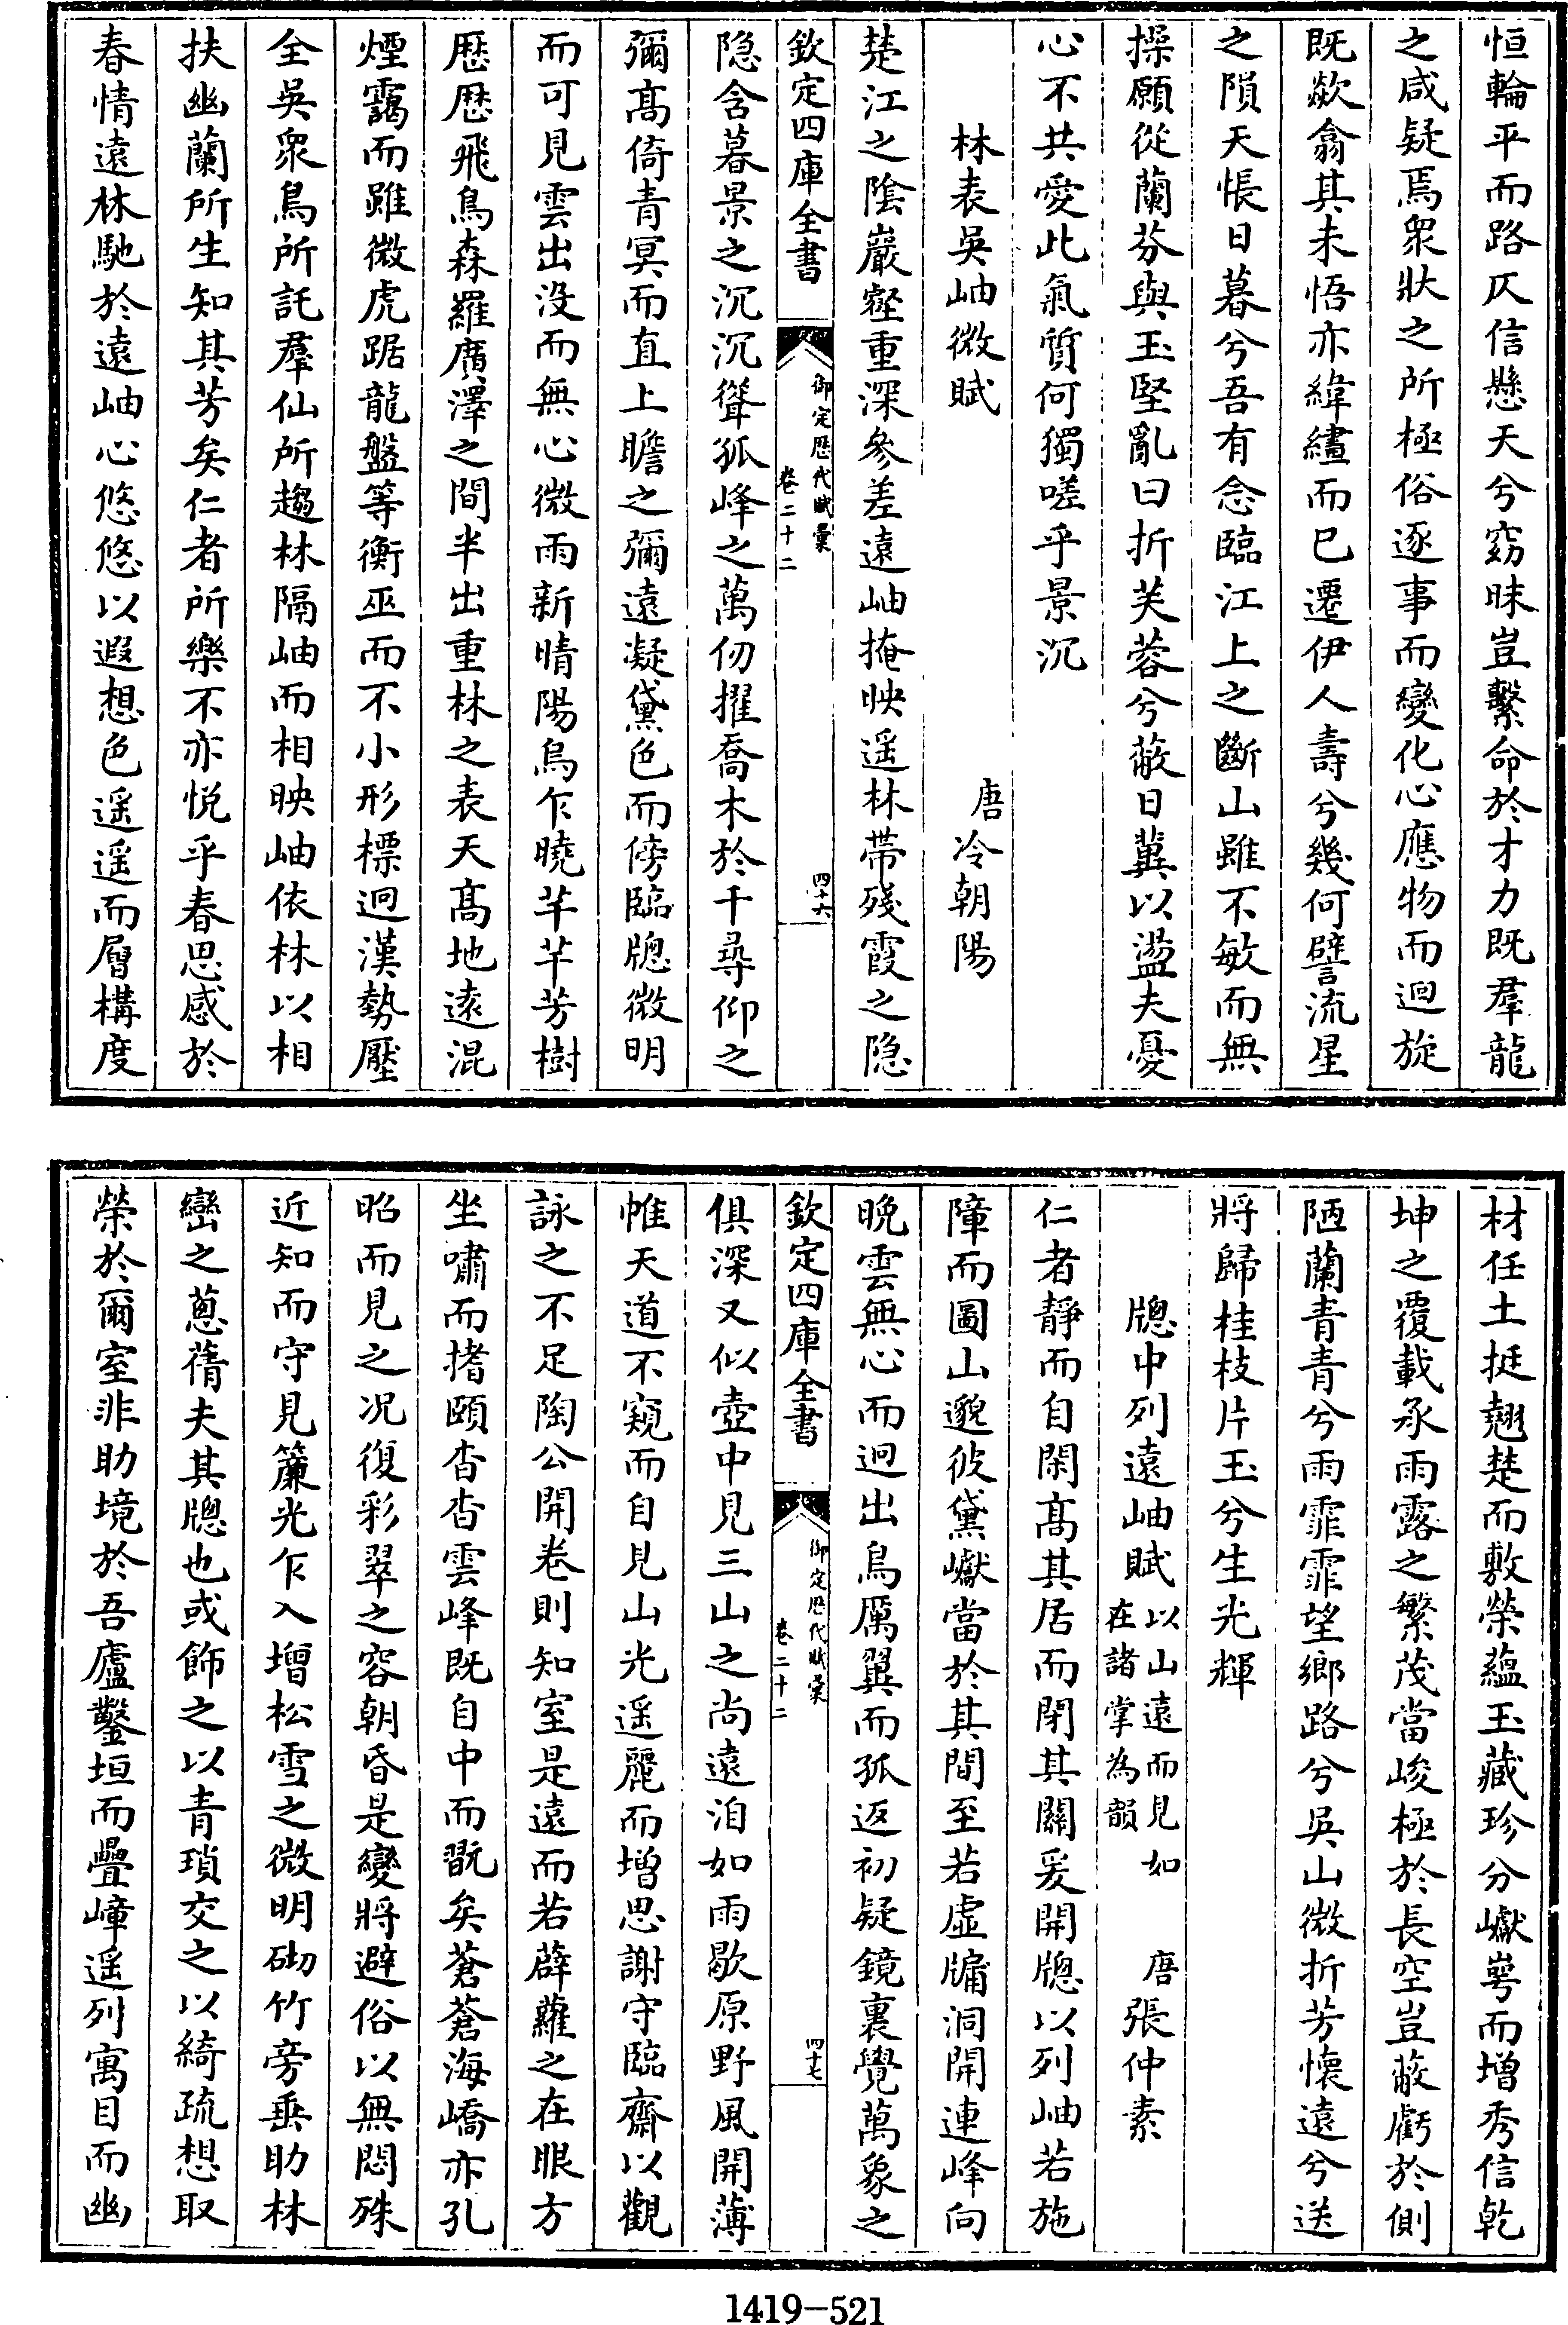 恒輪平而路仄信懸天兮窈昧豈繫命於才力既羣龍
之咸疑焉衆狀之所極俗逐事而變化心應物而迴旋
既歘翕其未悟亦緯繣而已遷伊人壽兮幾何譬流星
之隕天悵日暮兮吾有念臨江上之斷山雖不敏而無
操願從蘭芬與玉堅亂曰折芙蓉兮蔽日冀以盪夫憂
心不共愛此氣質何獨嗟乎景沉
林表吳岫微賦 唐冷朝陽
楚江之陰巖壑重深參差遠岫掩映遥林帶殘霞之隱
欽定四庫全書 御定歴代賦彙 卷二十二 四十六
隱含暮景之沉沉聳孤峰之萬仞擢喬木於千尋仰之
彌髙倚青冥而直上瞻之彌遠凝黛色而傍臨牕微明
而可見雲出没而無心微雨新晴陽烏乍曉芊芊芳樹
歴歴飛鳥森羅廣澤之間半出重林之表天髙地遠混
煙靄而雖微虎踞龍盤等衡巫而不小形標迥漢勢壓
全吳衆鳥所託羣仙所趨林隔岫而相映岫依林以相
扶幽蘭所生知其芳矣仁者所樂不亦悦乎春思感於
春情遠林馳於遠岫心悠悠以遐想色遥遥而層構度
材任土挺翹楚而敷榮蘊玉藏珍分巘崿而增秀信乾
坤之覆載承雨露之繁茂當峻極於長空豈蔽虧於側
陋蘭青青兮雨霏霏望鄉路兮吳山微折芳懷遠兮送
將歸桂枝片玉兮生光輝
牕中列遠岫賦 以山遠而見如在諸掌為韻 唐張仲素
仁者靜而自閑髙其居而閉其關爰開牕以列岫若施
障而圖山邈彼黛巘當於其間至若虛牖洞開連峰向
晩雲無心而迥出鳥厲翼而孤返初疑鏡裏覺萬象之
欽定四庫全書 御定歴代賦彙 卷二十二 四十七
俱深又似壺中見三山之尚遠洎如雨歇原野風開薄
帷天道不窺而自見山光遥麗而增思謝守臨齋以觀
詠之不足陶公開卷則知室是遠而若薜蘿之在眼方
坐嘯而搘頤杳杳雲峰既自中而翫矣蒼蒼海嶠亦孔
昭而見之况復彩翠之容朝昏是變將避俗以無悶殊
近知而守見簾光乍入增松雪之微明砌竹旁垂助林
巒之蔥蒨夫其牕也或飾之以青瑣交之以綺疏想取
榮於爾室非助境於吾廬鑿垣而疊嶂遥列寓目而幽
1419-521